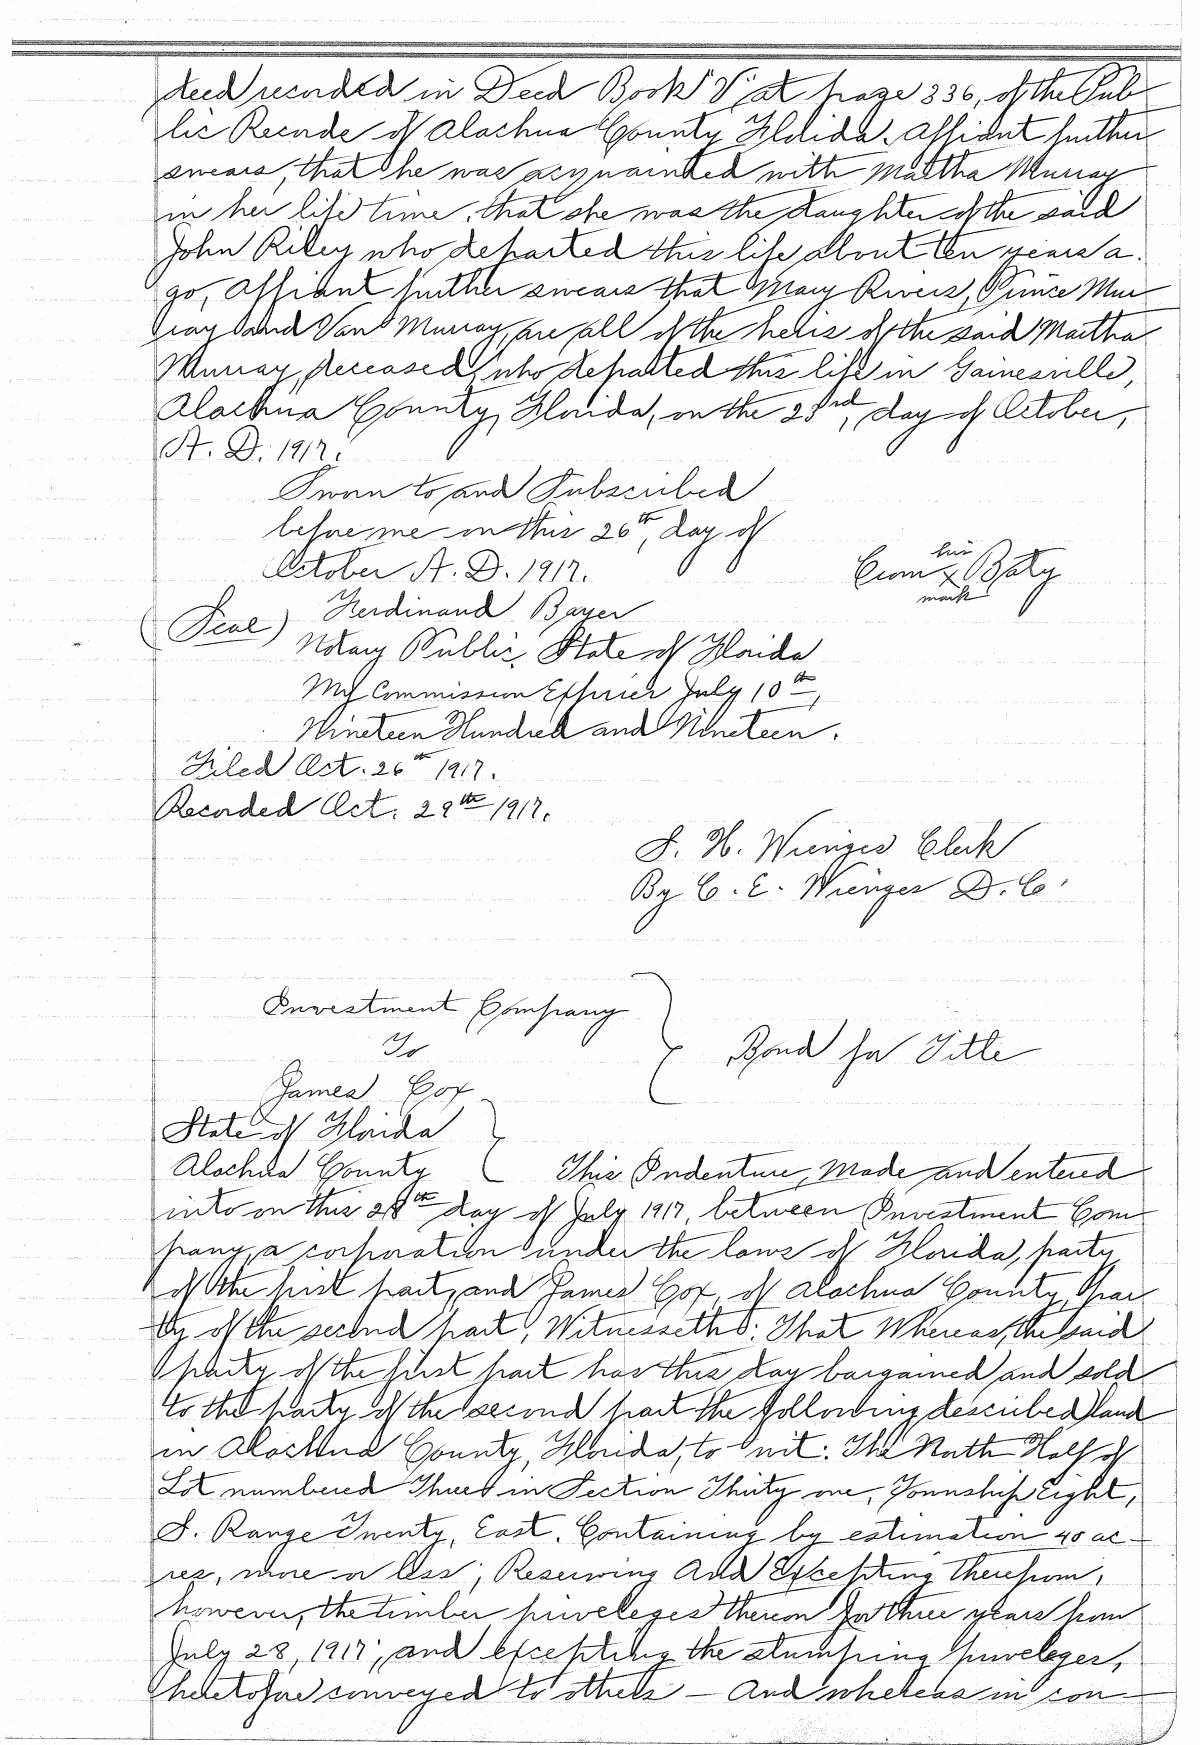 deed recorded in Deed Book "V" at page 336, of the Pub-
lic Records of Alachua County Florida. Affiant further
swears, that he was acquainted with Martha Murray
in her life time, that she was the daughter of the said
John Riley who departed this life about ten years a-
go, Affiant further swears that Mary Rivers, Prince Mur-
ray and Van Murray, are all of the heirs of the said Martha
Murray, deceased, who departed this life in Gainesville,
Alachua County, Florida, on the 23rd, day of October,
A. D. 1917.
Sworn to and Subscribed
before me on this 26th, day of
October A. D. 1917.
his
Crom x Baty
mark
(Seal) Ferdinand Bayer
Notary Public, State of Florida
My Commission Expires July 10th,
Nineteen Hundred and Nineteen.
Filed Oct. 26th 1917.
Recorded Oct. 29th 1917.
S. H. Wienges Clerk
By C. E. Wienges D. C.
Investment Company
To
Bond for Title
James Cox
State of Florida
Alachua County This Indenture, Made and entered
into on this 28th day of July 1917, between Investment Com-
pany, a corporation under the laws of Florida, party
of the first part, and James Cox, of Alachua County, par-
ty of the second part, Witnesseth: That Whereas, the said
party of the first part has this day bargained and sold
to the party of the second part the following described land
in Alachua County, Florida, to wit: The North Half of
Lot numbered Three in Section Thirty one, Township Eight,
S. Range Twenty, East. Containing by estimation 40 ac-
res, more or less; Reserving And Excepting therefrom,
however, the timber priveleges thereon for three years from
July 28, 1917; and excepting the stumping priveleges,
heretofore conveyed to others - And whereas in con-